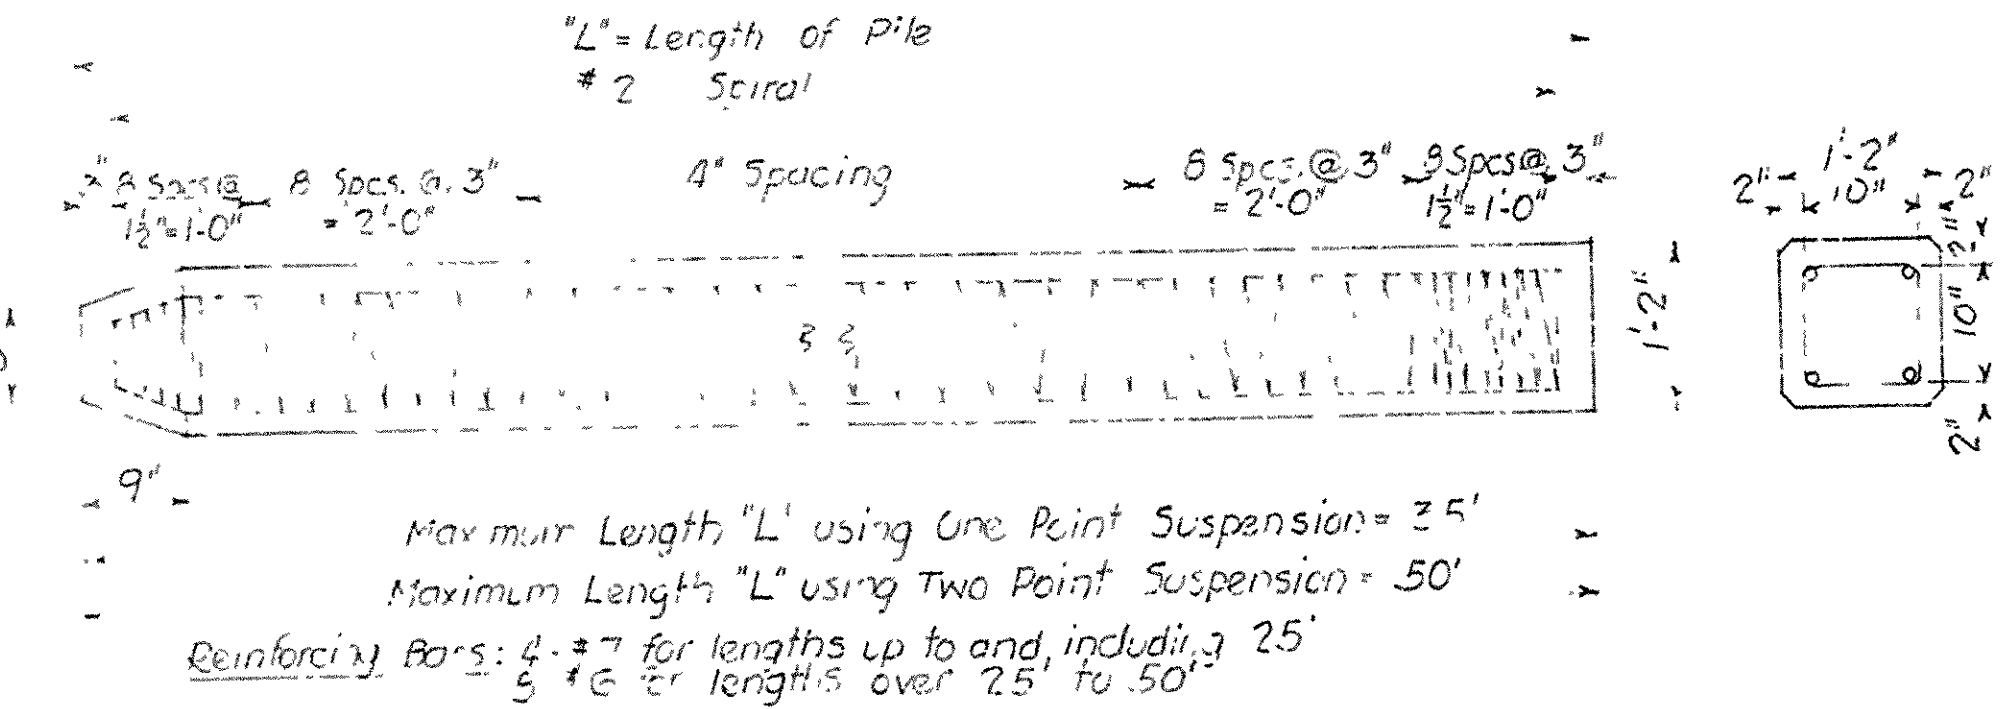 "L" = Length of Pile
# 2 Spiral
8 Spcs @ 1½" = 1'-0"
8 Spcs. @ 3" = 2'-0"
4" Spacing
8 Spcs. @ 3" = 2'-0"
8 Spcs @ 1½" = 1'-0"
3"
1'-2"
2" 10" 2"
2"
10"
2"
1'-2"
9"
Maximum Length "L" using One Point Suspension = 35'
Maximum Length "L" using Two Point Suspension = 50'
Reinforcing Bars: 4 - #7 for lengths up to and including 25'
lengths over 25' to 50'